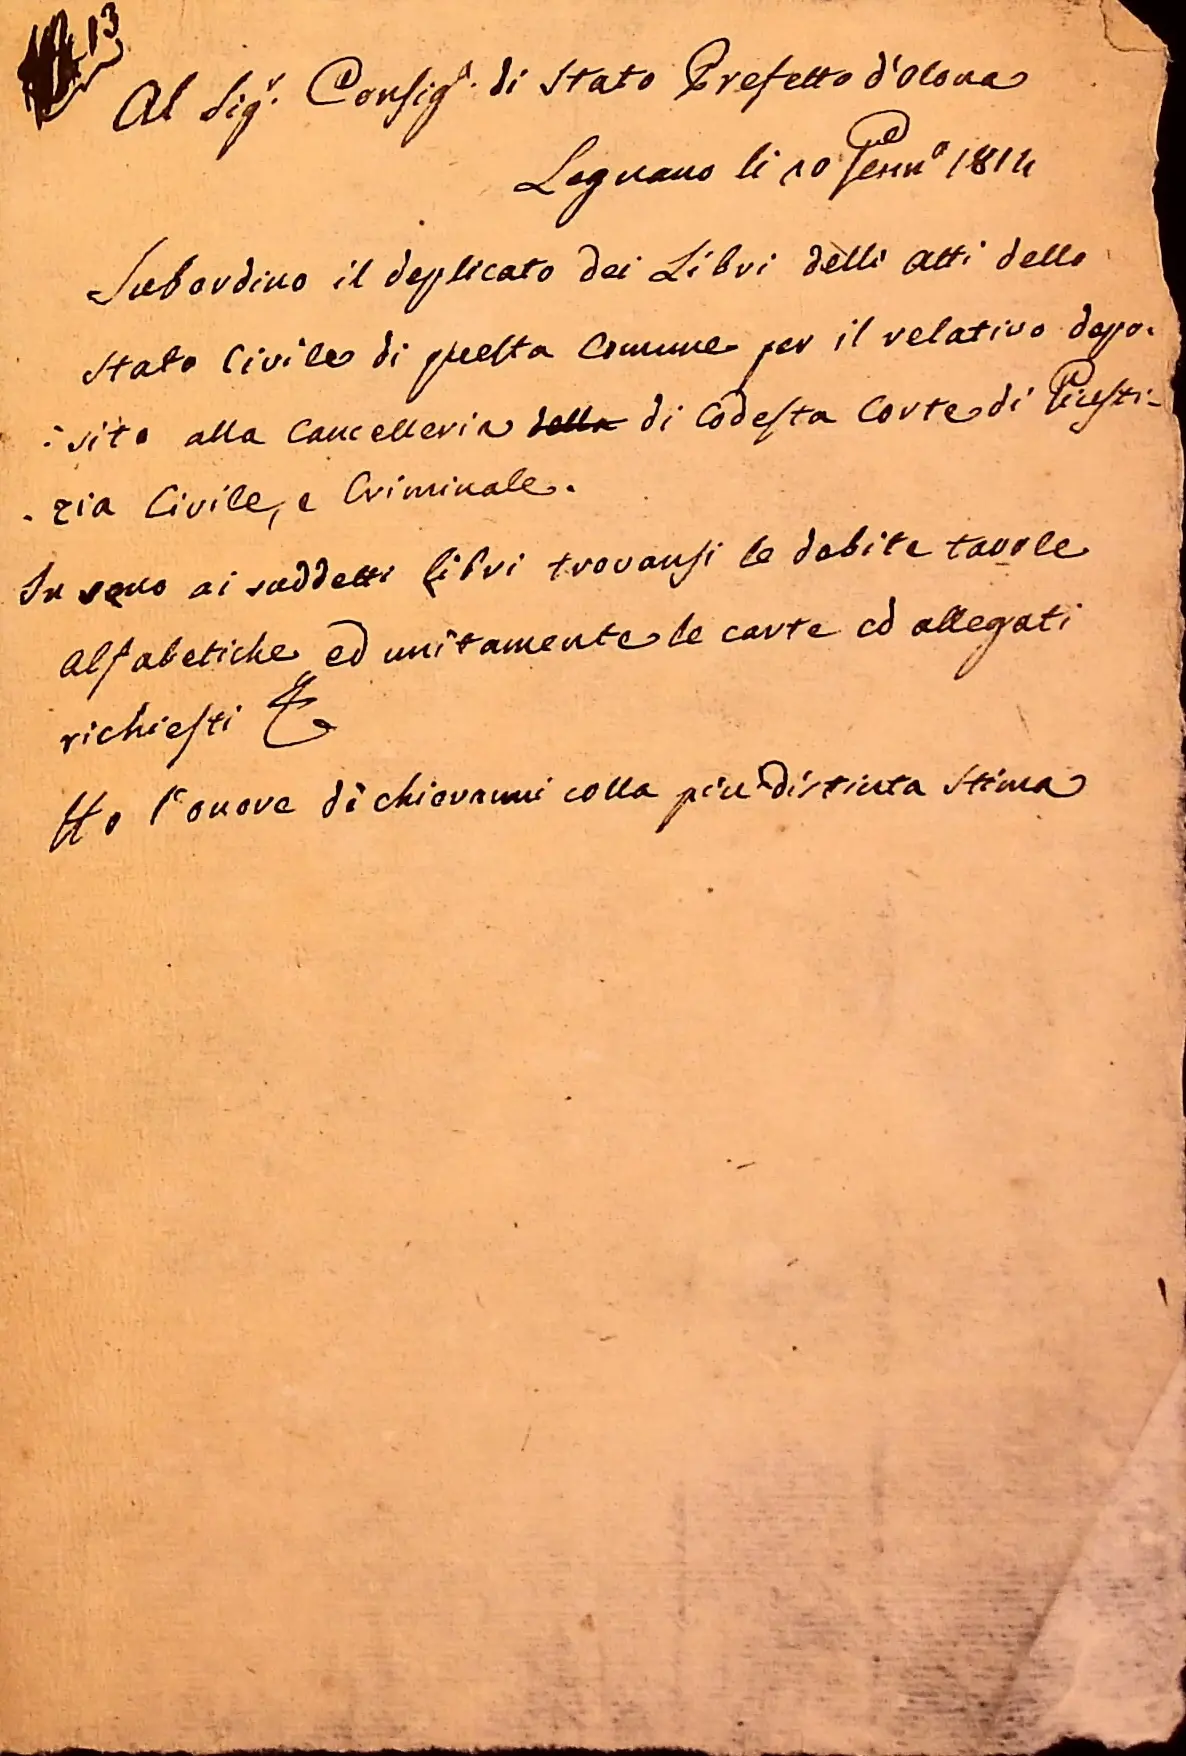 13
Al Sig.r Consig.e di Stato Prefetto d'Olona
Legnano li 10 Genn.o 1814
Subordino il duplicato dei Libri delli Atti dello
Stato Civile di questa Comune per il relativo depo-
sito alla Cancelleria della di Codesta Corte di Giusti-
zia Civile, e Criminale.
In seno ai suddetti libri trovansi le debite tavole
alfabetiche ed unitamente le carte ed allegati
richiesti
Ho l'onore di chiovarmi colla più distinta stima